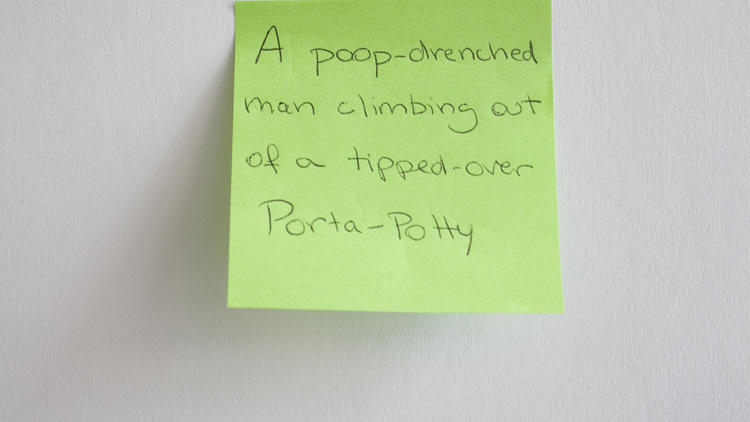 A poop-drenched
man climbing out
of a tipped-over
Porta-Potty